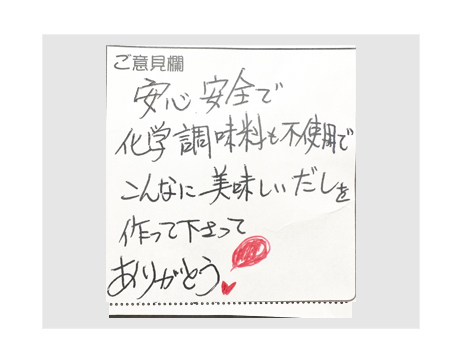 ご意見欄
安心 安全で
化学調味料も不使用で
こんなに美味しいだしを
作って下さって
ありがとう